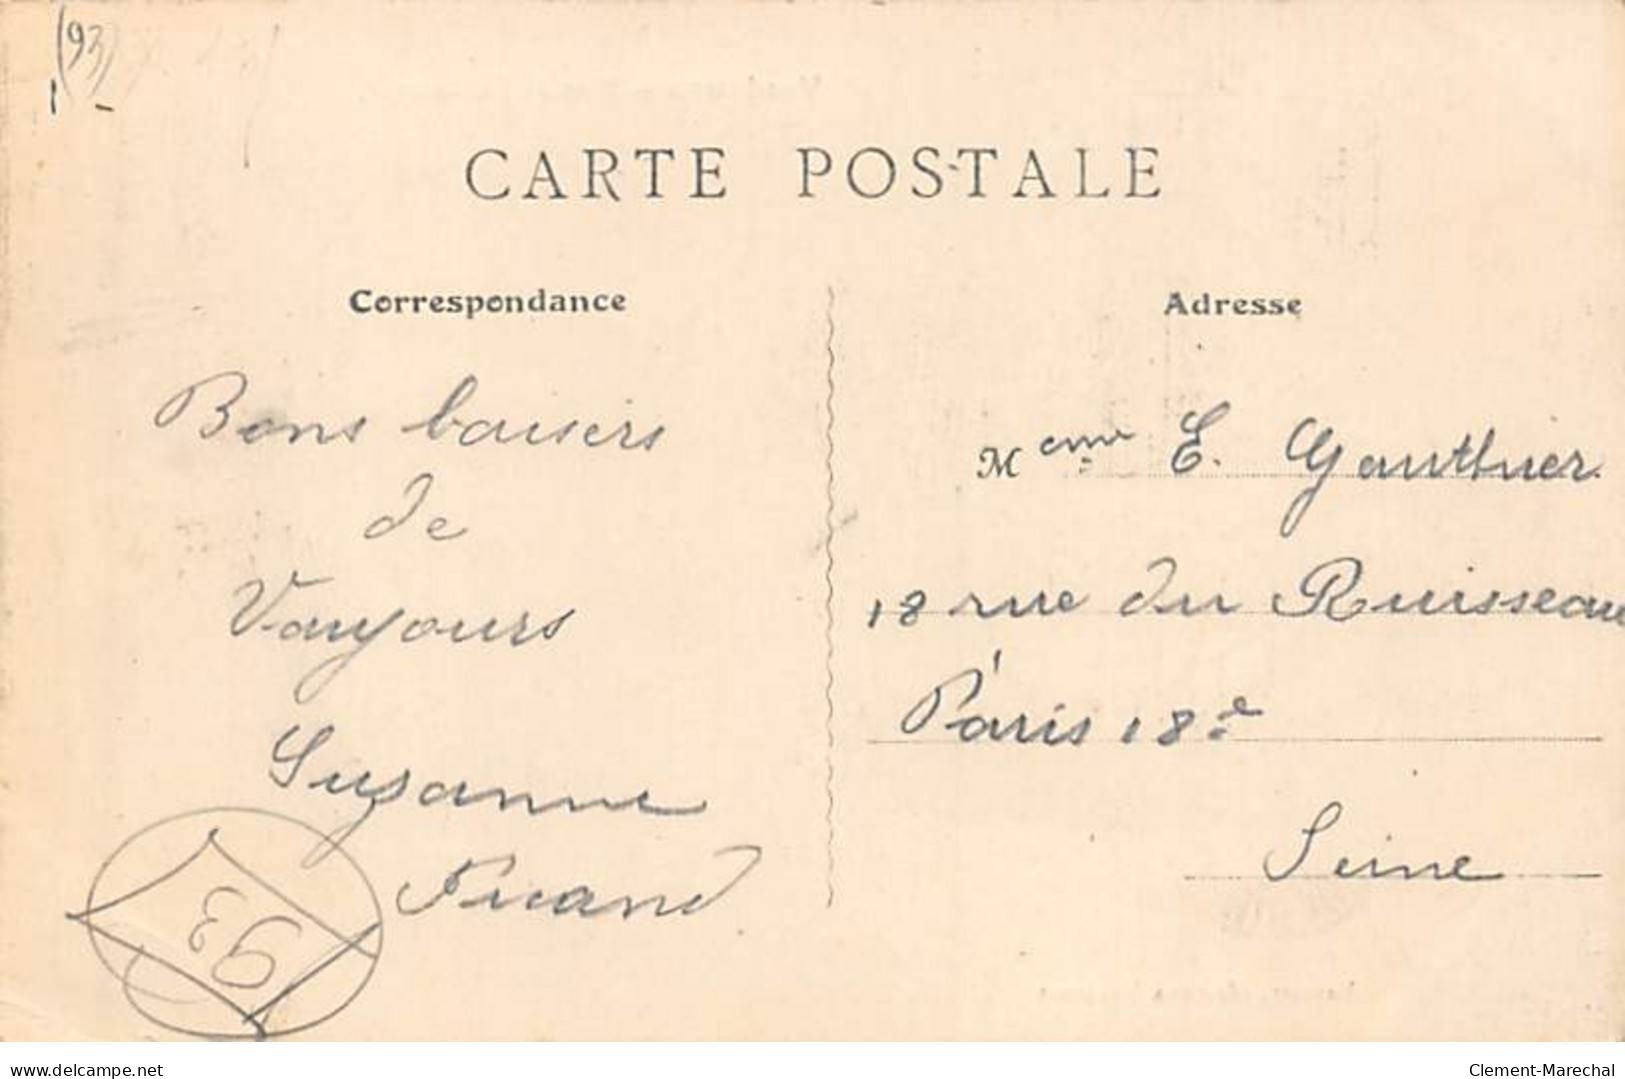 (93)
CARTE POSTALE
Correspondance
Bons baisers
de
Vaujours
Suzanne
93
Adresse
Mme E. Gauthier.
18 rue du Ruisseau
Paris 18e
Seine
www.delcampe.net
Clement-Marechal